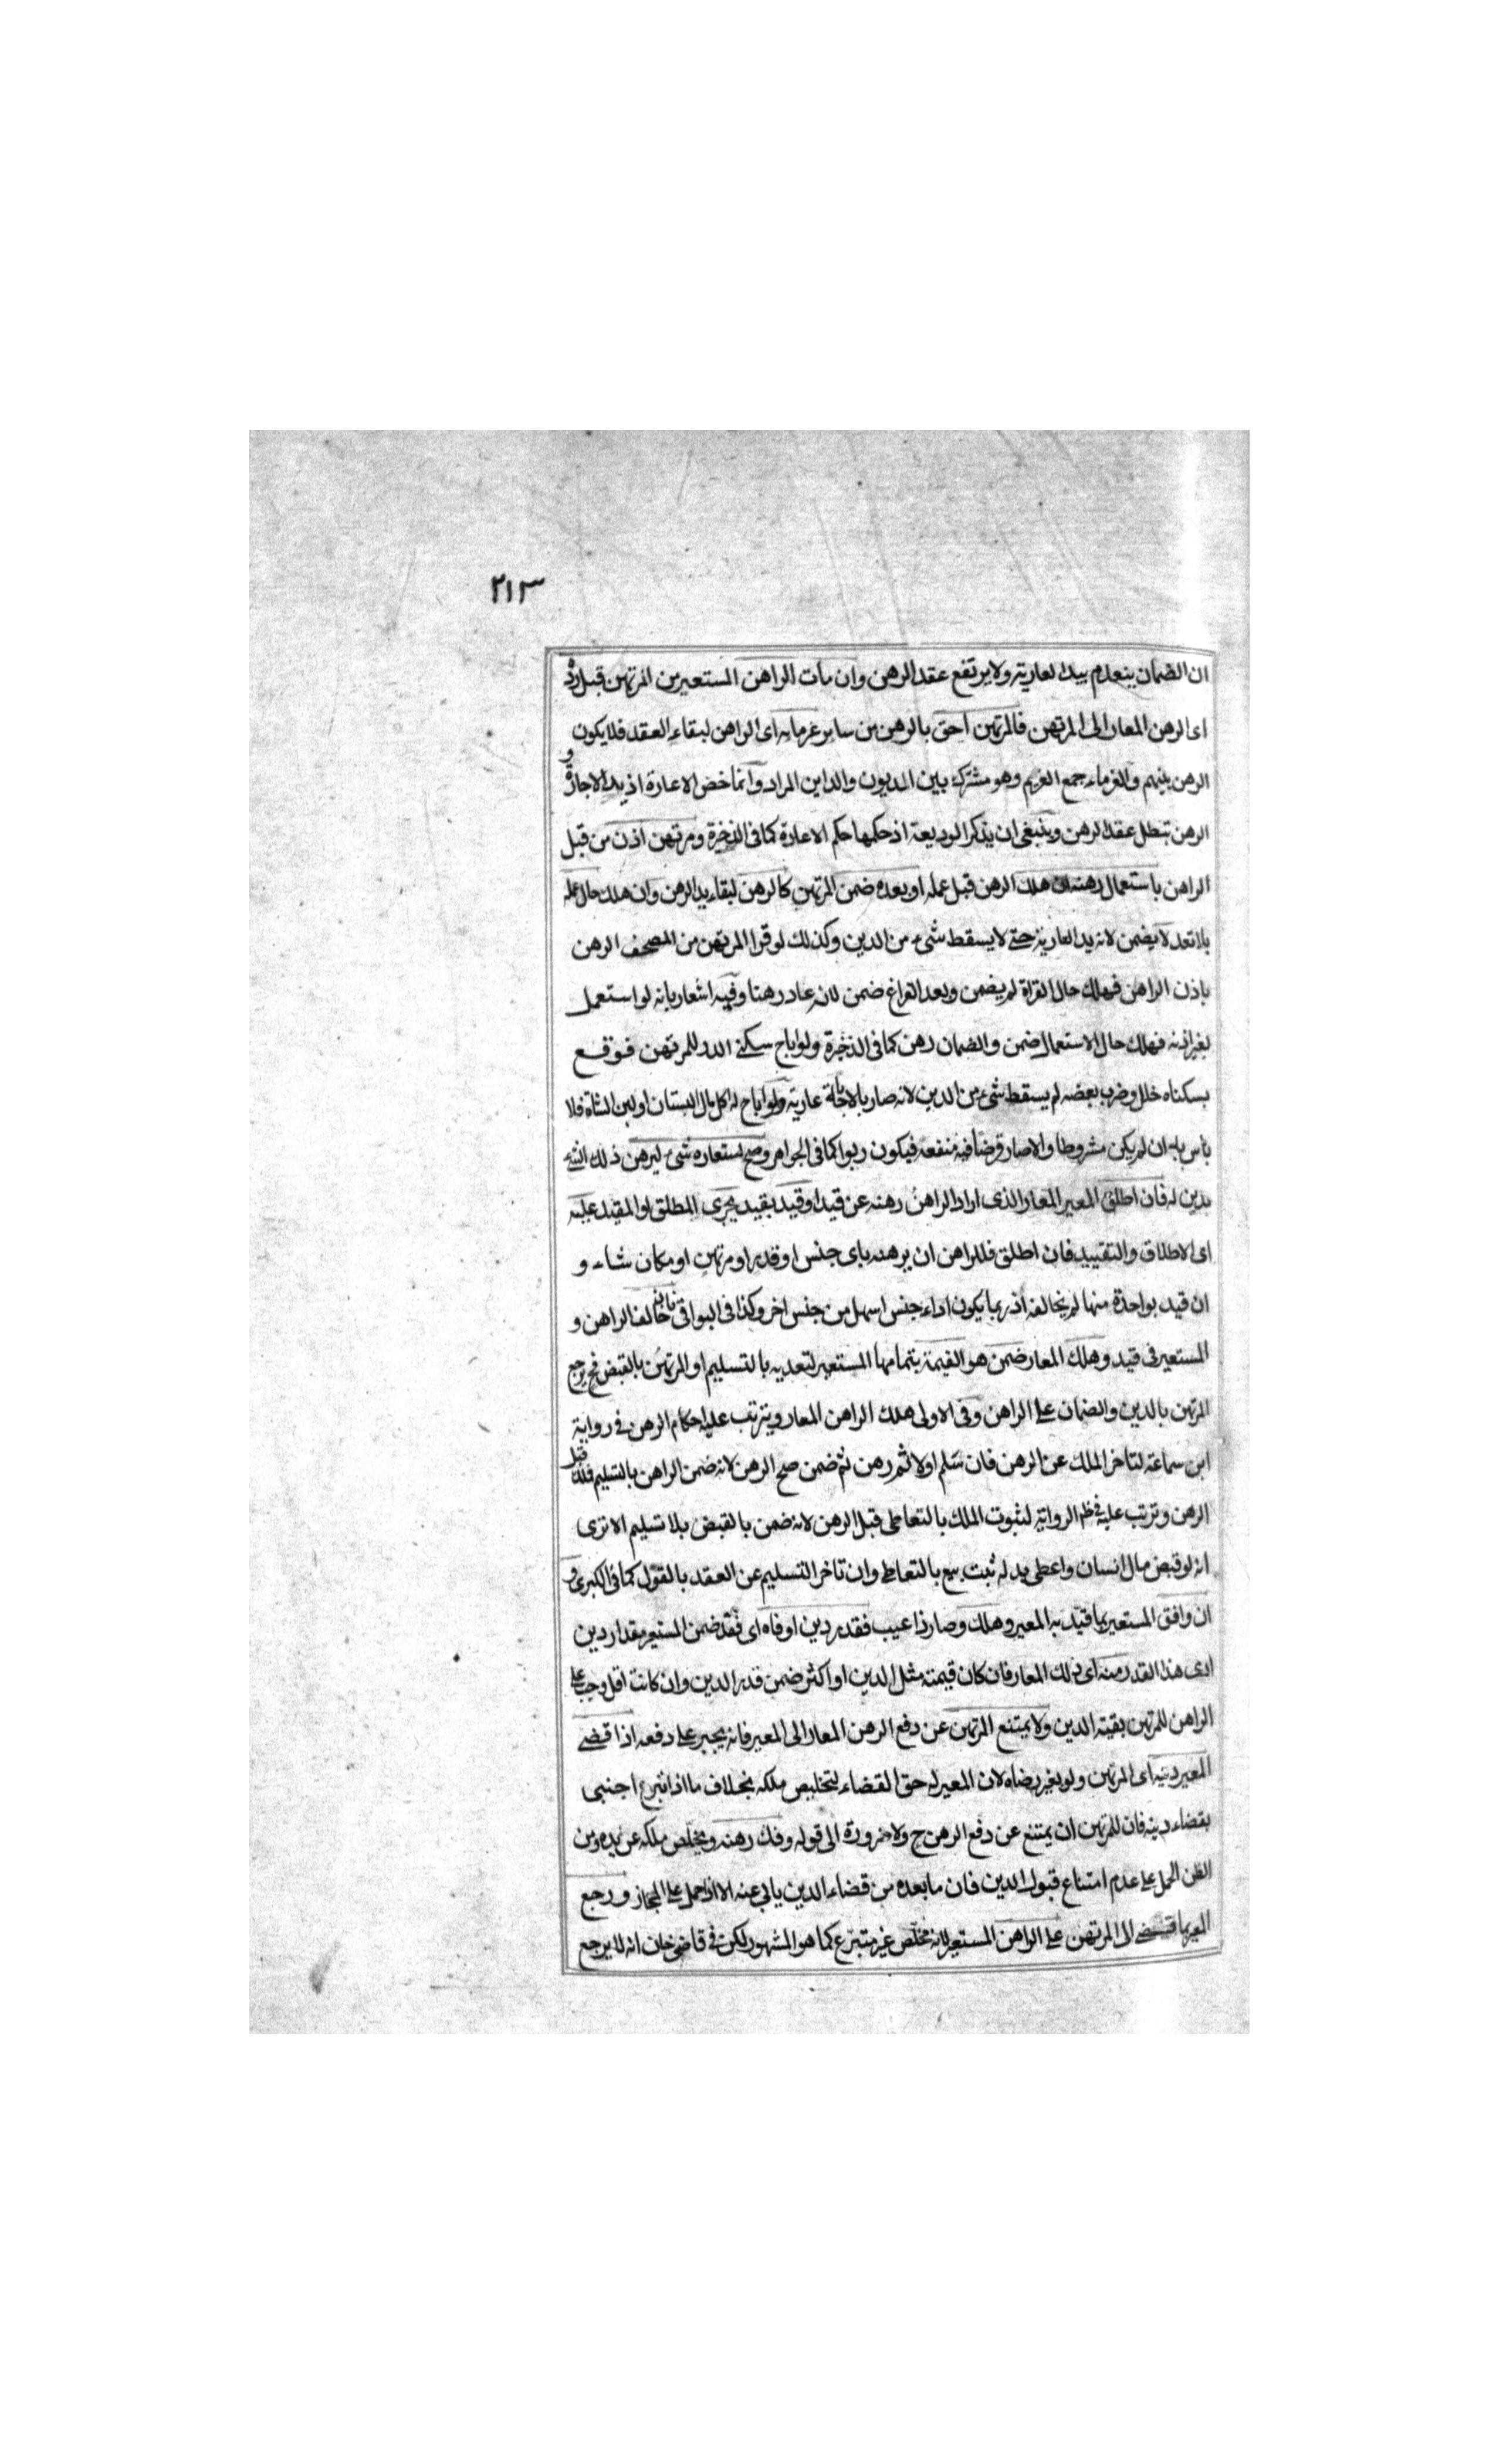 ٢١٣
ان الضمان ينعدم بيد العارية ولا يرتفع عقد الرهن وان مات الراهن المستعير من المرتهن قبل رده
اى الرهن المعار الى المرتهن فالمرتهن احق بالرهن من ساير غرمايه اى الراهن لبقاء العقد فلا يكون
الرهن بينهم والغرماء جمع الغريم وهو مشترك بين المديون والداين المراد وانما خض الاعارة اذ بيد الاجارة و
الرهن تبطل عقد الرهن وينبغى ان يذكر الوديعة اذ حكمها حكم الاعارة كما فى الذخيرة ومرتهن اذن من قبل
الراهن باستعمال رهنه ان هلك الرهن قبل عمله او بعده ضمن المرتهن كالرهن لبقاء يد الرهن وان هلك حال عمله
بلا تعد لا يضمن لانه يد العارية حتى لا يسقط شىء من الدين وكذلك لو قرا المرتهن من المصحف الرهن
باذن الراهن فهلك حال القراة لم يضمن وبعد الفراغ ضمن لانه عاد رهنا وفيه اشعار بانه لو استعمل
بغير اذنه فهلك حال الاستعمال ضمن والضمان رهن كما فى الذخيرة ولو اباح سكنى الدار للمرتهن فوقع
بسكناه خلل وخرب بعضه لم يسقط شىء من الدين لانه صار بالاباحة عارية ولو اباح له اكل مال البستان او لبن الشاة فلا
باس به ان لم يكن مشروطا والا صار قرضا فيه منفعة فيكون ربوا كما فى الجواهر وصح استعاره شىء ليرهن ذلك الشىء
بدين له فان اطلق المعير المعار الذى اراد الراهن رهنه عن قيد او قيد بقيد يجرى المطلق او المقيد عليه
اى الاطلاق والتقييد فان اطلق فللراهن ان يرهنه باى جنس او قدر او مرتهن او مكان شاء و
ان قيد بواحدة منها لم يخالفه اذ ربما يكون اداء جنس اسهل من جنس اخر وكذا فى البواقى فان خالف الراهن و
المستعير فى قيد وهلك المعار ضمن هو القيمة بتمامها المستعير لتعديه بالتسليم او المرتهن بالقبض فح يرجع
المرتهن بالدين والضمان على الراهن وفى الاولى هلك الراهن المعار ويترتب عليه احكام الرهن فى رواية
ابن سماعة لتاخر الملك عن الرهن فان سلم اولا ثم رهن ثم ضمن صح الرهن لانه ضمن الراهن بالتسليم فملك قبل
الرهن وترتب عليه فى ظم الرواية لثبوت الملك بالتعاطى قبل الرهن لانه ضمن بالقبض بلا تسليم الا ترى
انه لو قبض مال انسان واعطى بدله ثبت بيع بالتعاطى وان تاخر التسليم عن العقد بالقول كما فى الكبرى و
ان وافق المستعير بما قيد به المعير وهلك وصار ذا عيب فقدر دين اوفاه اى فقد ضمن المستعير مقدار دين
ادى هذا القدر منه اى ذلك المعار فان كان قيمته مثل الدين او اكثر ضمن قدر الدين وان كانت اقل وجب على
الراهن للمرتهن بقية الدين ولا يمتنع المرتهن عن دفع الرهن المعار الى المعير فانه يجبر على دفعه اذا قضى
المعير دينه اى المرتهن ولو بغير رضاه لان المعير له حق القضاء لتخليص ملكه بخلاف ما اذا تبرع اجنبى
بقضاء دينه فان للمرتهن ان يمتنع عن دفع الرهن ح ولا ضرورة الى قوله وفك رهنه ويخلص ملكه عن يده ومن
الظن الحمل على عدم امتناع قبول الدين فان ما بعده من قضاء الدين يابى عنه الا اذا حمل على المجاز ورجع
المعير بما قضى الى المرتهن على الراهن المستعير لانه مخلص غير متبرع كما هو المشهور لكن فى قاضى خان انه لا يرجع